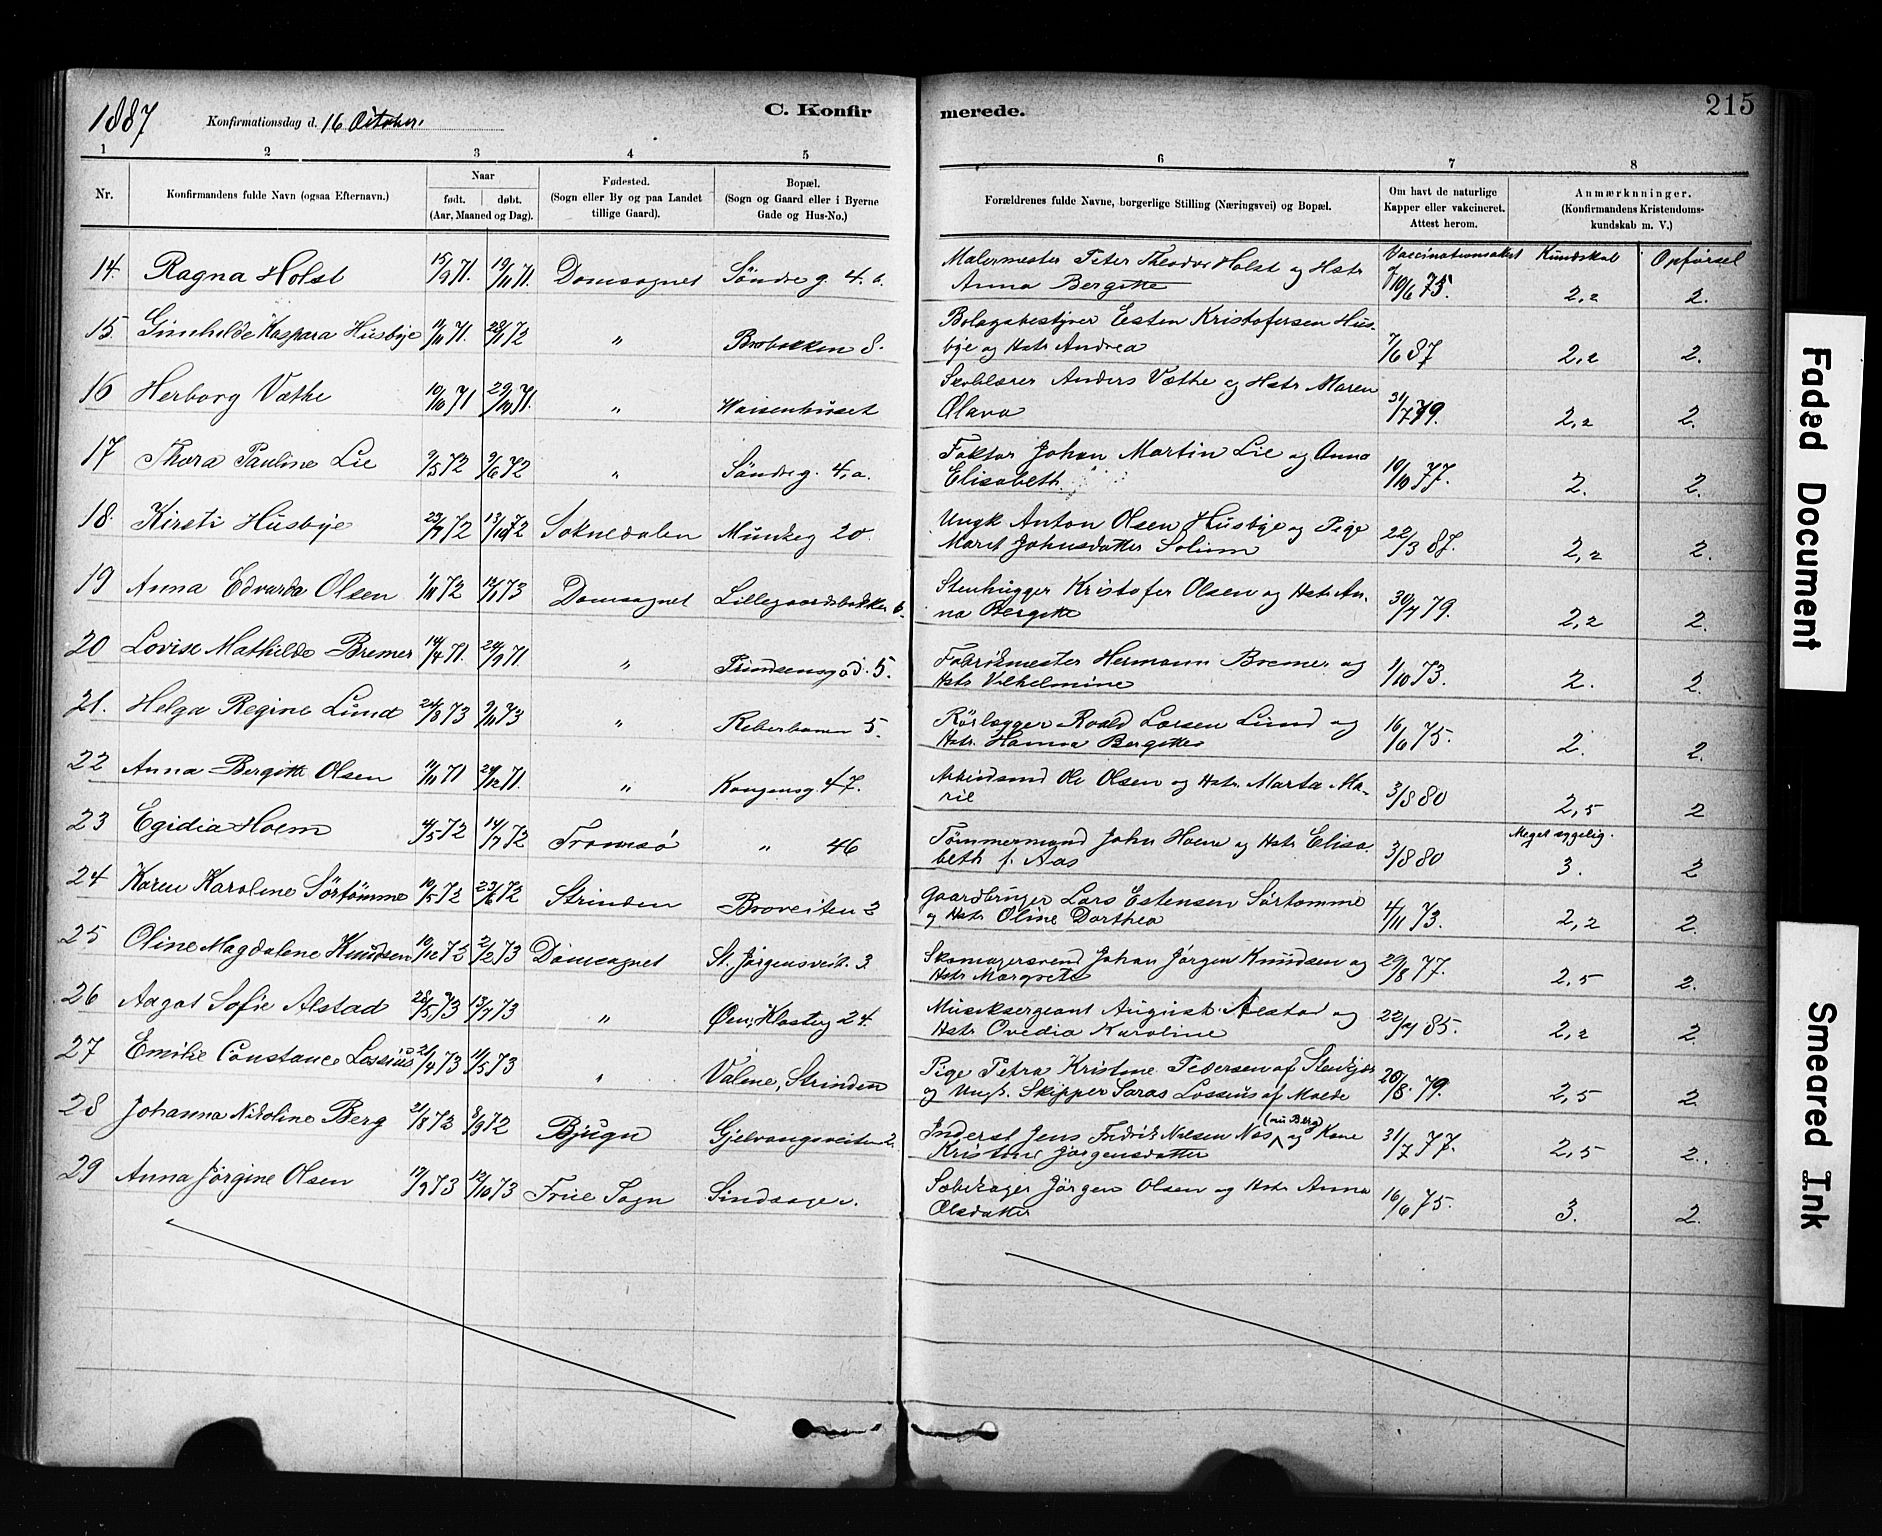 1887 Konfirmationsdag d. 16 October. C. Konfirmerede. 215
1 2 3 4 5 6 7 8
Nr. Konfirmandens fulde Navn (ogsaa Efternavn.) Naar født. døbt. (Aar, Maaned og Dag). Fødested. (Sogn eller By og paa Landet tillige Gaard). Bopæl. (Sogn og Gaard eller i Byerne Gade og Hus-No.) Forældrenes fulde Navne, borgerlige Stilling (Næringsvei) og Bopæl. Om havt de naturlige Kapper eller vakcineret. Attest herom. Anmærkninger. (Konfirmandens Kristendoms-kundskab m. V.)
Vaccinationsattest Kundskab Opførsel
14. Ragna Holst 15/9 71. 19/11 71. Domsognet Söndre g. 4. b. Malermester Peter Theodor Holst og Hstr
Anna Bergitte af 10/6 75. 2,2 2.
15. Gunhilde Kaspara Husbye 71. 72 " Brobakken 8. Bolagsbestyrer Esten Kristofersen Hus-
bye og Hstr Andrea 7/6 87 2,2 2.
16 Herborg Væthe 19/10 71 29/10 71. " Waisenhuset Skolelærer Anders Væthe og Hstr Maren
Olava 31/7 79. 2,2 2.
17 Thora Pauline Lie 9/5 72 9/6 72 " Söndre g. 4, a. Faktor Johan Martin Lie og Anna
Elisabeth. 10/10 77. 2. 2.
18. Kirsti Husbye 72 13/10 72 Soknedalen Munkeg 20. Ungk Anton Olsen Husbye og Pige
Marit Johnsdatter Solium 22/3 87. 2,2 2.
19 Anna Edvarda Olsen 72 12/1 73 Domsognet Lillegaardsbakken 6. Stenhugger Kristofer Olsen og Hstr An-
na Bergitte 79. 2,2 2.
20 Lovise Mathilde Bremer 14/4 71. 24/9 71 " 5. Fabrikmester Hermann Bremer og
Hstr Vilhelmine 1/10 73. 2. 2.
21. Helga Regine Lund 24/8 73 9/11 73 " Reberbanen 5. Rørlægger Roald Larsen Lund og
Hstr. Hanna Bergitte 16/6 75. 2. 2.
22 Anna Bergitte Olsen 71 24/12 71. " Kongensg. 47. Arbeidsmd Ole Olsen og Hstr. Marta Ma-
rie 3/8 80 2,5 2
23 Egidia Hoem 4/5 72 14/7 72 Tromsø " 46 Tømmermand John Hoem og Hstr Elisa-
beth f. Aas 3/8 80 Meget sygelig. 3. 2
24 Karen Karoline Sörtömme 19/5 72 23/6 72 Strinden Broveiten 2 Gaardbruger Lars Estensen Sørtømme
og Hstr Oline Dorthea 4/11 73. 2,2 2.
25 Oline Magdalene Knudsen 19/12 72 2/2 73 Domsognet St. Jørgensveit. 3. Skomagersvend Johan Jørgen Knudsen og
Hstr Margrete 29/8 77. 2,5 2.
26 Aagot Sofie Alstad 28/5 73 13/7 73 " Øen, Klosterg 24. Musiksergeant August Alstad og
Hstr Ovedia Karoline 85. 2,2 2.
27 Emilie Constance Lossius 21/4 73 11/5 73 " Valene, Strinden Pige Petra Kristine Pedersen af Stenkjær
og Ungk. Skipper Saras Lossius af Molde 20/8 79. 2,5 2.
28 Johanna Nikoline Berg 21/8 72 8/9 72 Bjugn Gjelvangsveiten 2. Inderst Jens Fredrik Nilsen Nos (nu Berg) og Kone
Kristine Jørgensdatter 31/7 77. 2,5 2.
29 Anna Jørgine Olsen 73 12/10 73 Frue Sogn Sindsager. Sobekager Jørgen Olsen og Hstr Anna
Olsdatter 16/6 75. 3. 2.
Faded Document
Smeared Ink